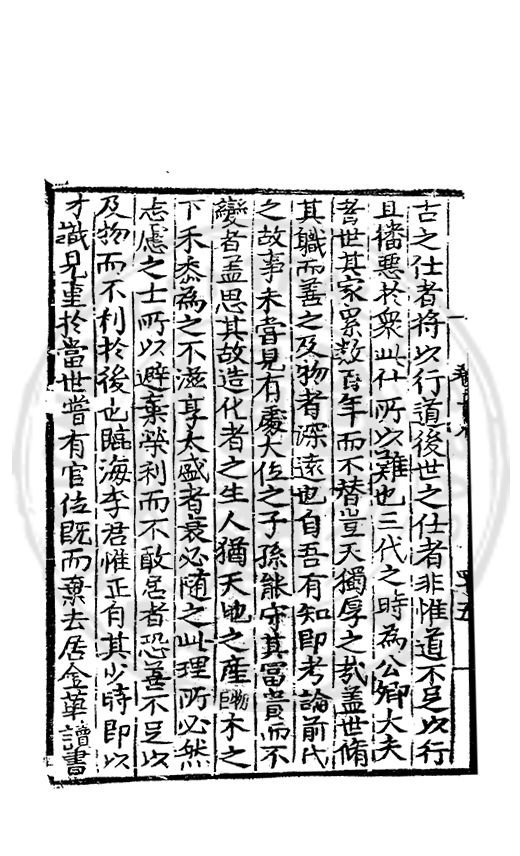 古之仕者將以行道後世之仕者非惟道不足以行
且播惡於衆此仕所以難也三代之時為公卿大夫
者世其家累数百年而不替豈天獨厚之哉盖世脩
其職而善之及物者深遠也自吾有知即考論前代
之故事未嘗見有處大位之子孫能守其冨貴而不
變者盖思其故造化者之生人猶天地之產物木之
下禾黍為之不滋享太盛者衰必随之此理所必然
志慮之士所以避棄榮利而不敢居者恐善不足以
及物而不利於後也臨海李君惟正自其少時即以
才識見重於當世嘗有官位既而棄去居金華讀書